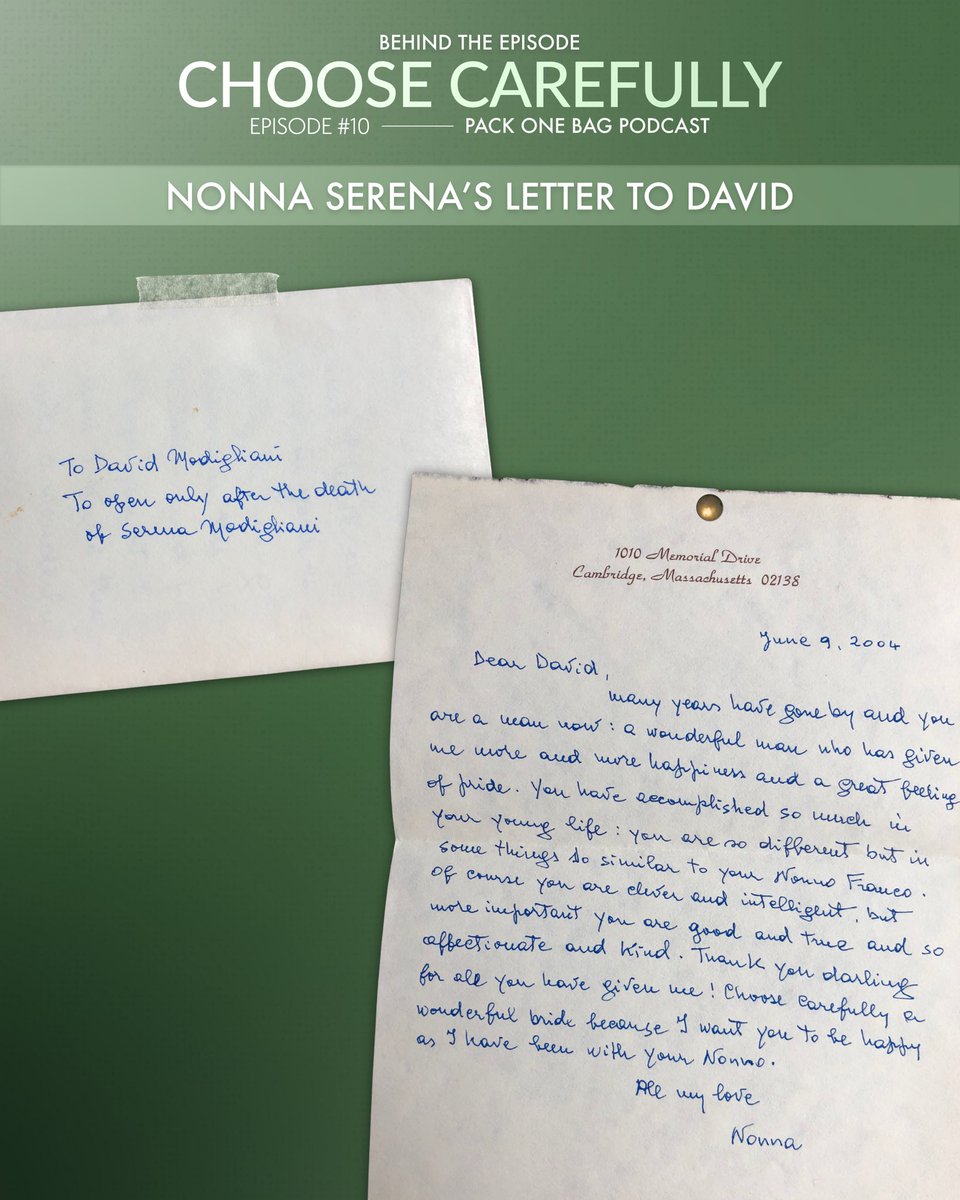 BEHIND THE EPISODE
CHOOSE CAREFULLY
EPISODE #10 PACK ONE BAG PODCAST
NONNA SERENA'S LETTER TO DAVID
To David Modigliani
To open only after the death
of Serena Modigliani
1010 Memorial Drive
Cambridge, Massachusetts 02138
June 9, 2004
Dear David,
many years have gone by and you
are a man now: a wonderful man who has given
me more and more happiness and a great feeling
of pride. You have accomplished so much in
your young life: you are so different but in
some things so similar to your Nonno Franco.
Of course you are clever and intelligent, but
more important you are good and true and so
affectionate and kind. Thank you darling
for all you have given me! Choose carefully a
wonderful bride because I want you to be happy
as I have been with your Nonno.
All my love
Nonna